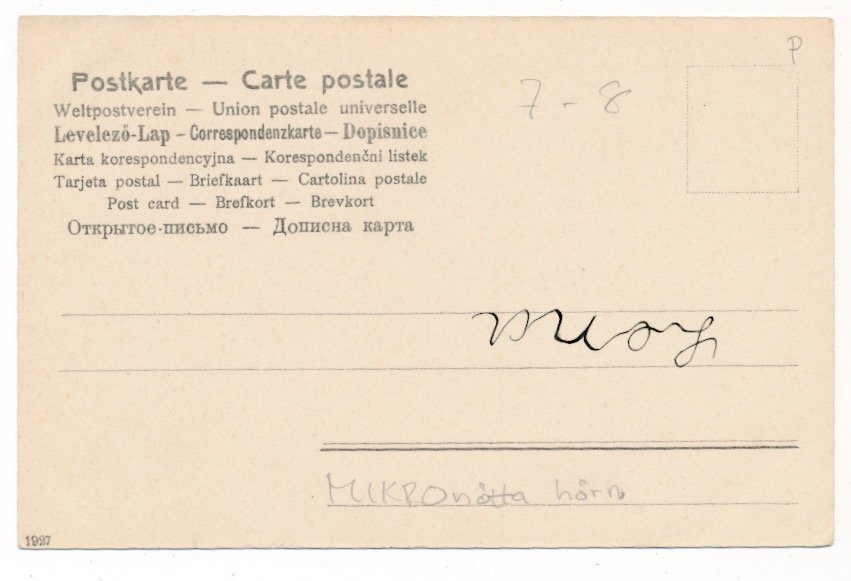 P
Postkarte — Carte postale
7 - 8
Weltpostverein — Union postale universelle
Levelező-Lap – Correspondenzkarte – Dopisnice
Karta korespondencyjna — Korespondenčni listek
Tarjeta postal — Briefkaart — Cartolina postale
Post card — Brefkort — Brevkort
Открытое-письмо — Дописна карта
MIKROnötta hörn
1927